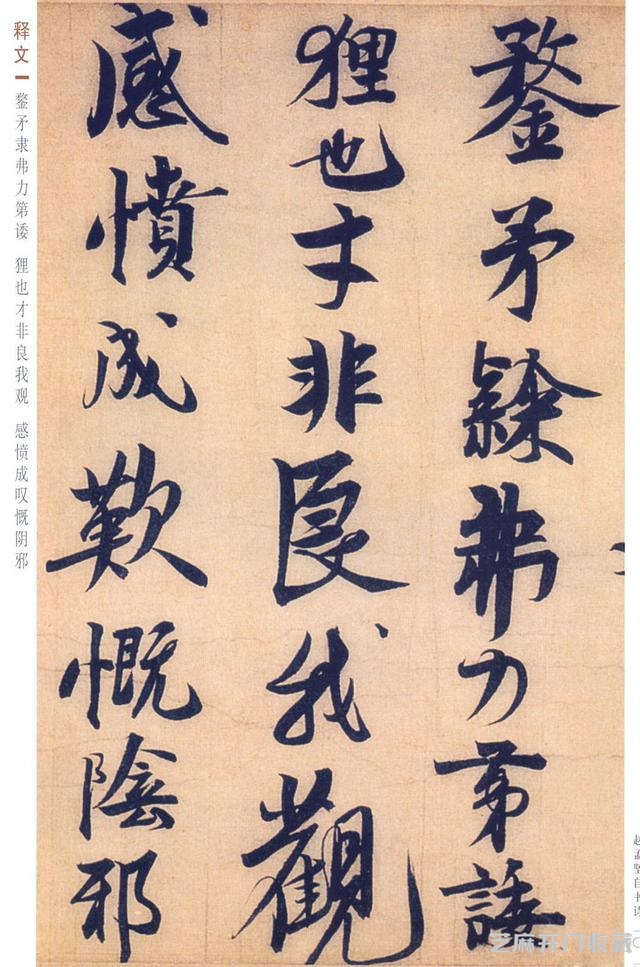 鍪矛隸弗力第諉
狸也才非良我觀
感憤成歎慨陰邪
释文
鍪矛隶弗力第诿 狸也才非良我观 感愤成叹慨阴邪
赵孟坚自书诗
芝麻开门收藏